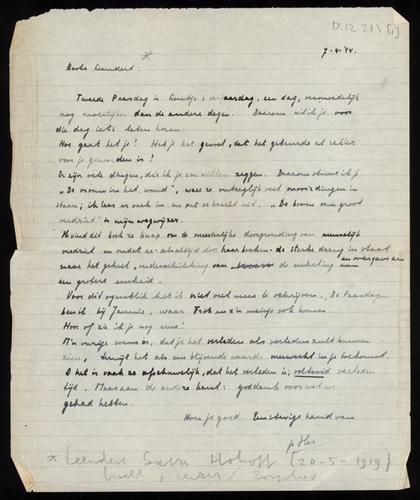 D.12.213 [1]
*
7.4.44.
Beste Leendert:
Tweede Paasdag is verjaardag, een dag, vermoedelijk
nog moeilijker dan de andere dagen. Daarom wil ik je voor
die dag iets laten horen.
Hoe gaat het je? Heb je het gevoel, dat het gebeurde al reëler
voor je geworden is?
Er zijn vele dingen, die ik je zou willen zeggen. Daarom stuur ik je
"De vrouw in het woud", waar ze veel mooie dingen in
staan; ik lees er vaak in en put er kracht uit. "De boom van groot
verdriet" is mijn wegwijzer.
Ik vind dit boek zo knap om de meesterlijke doorgronding van menselijk
verdriet en omdat er altijd door haar boeken de sterke drang in staat
naar het geheel, onderschikking van de enkeling aan en overgave aan
een grotere eenheid.
Voor dit ogenblik heb ik niet veel meer te schrijven. De Paasdagen
ben ik bij Jannie, waar Frits en zijn meisje ook komen.
Hoor of zie ik je nog eens?
M'n vurige wens is, dat je het verleden als verleden zult kunnen
zien, terwijl het als een blijvende waarde meewerkt in je toekomst.
O het is vaak zo afschuwelijk, dat het verleden is; voltooid verleden
tijd. Maar aan de andere kant: goddank voor wat we
gehad hebben.
Hou je goed. Een stevige hand van
* Leendert Hohoff (20-5-1919)